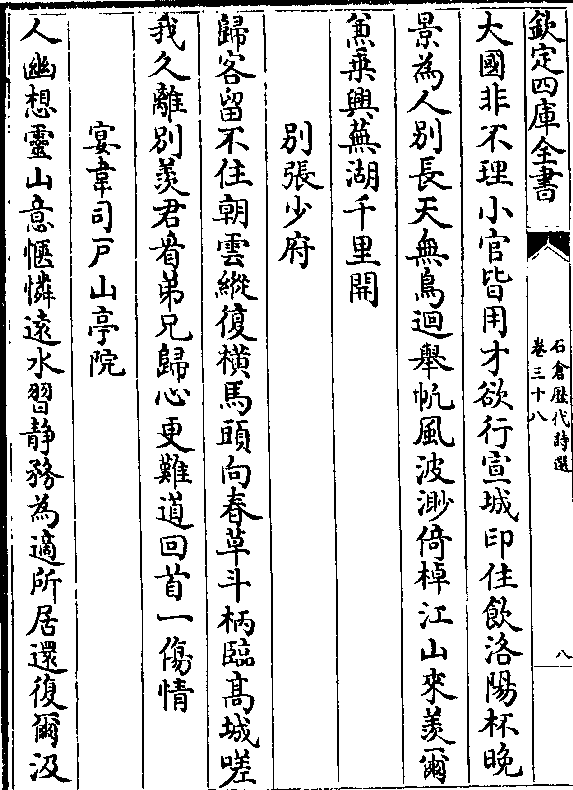 欽定四庫全書
石倉歴代詩選
卷三十八
八
大國非不理小官皆用才欲行宣城印住飲洛陽杯晚
景為人别長天無鳥迴舉帆風波渺倚棹江山來羨爾
兼乗興蕪湖千里開
别張少府
歸客留不住朝雲縱復横馬頭向春草斗柄臨髙城嗟
我久離别羨君看弟兄歸心更難道回首一傷情
宴韋司戸山亭院
人幽想靈山意愜憐遠水習静務為適所居還復爾汲